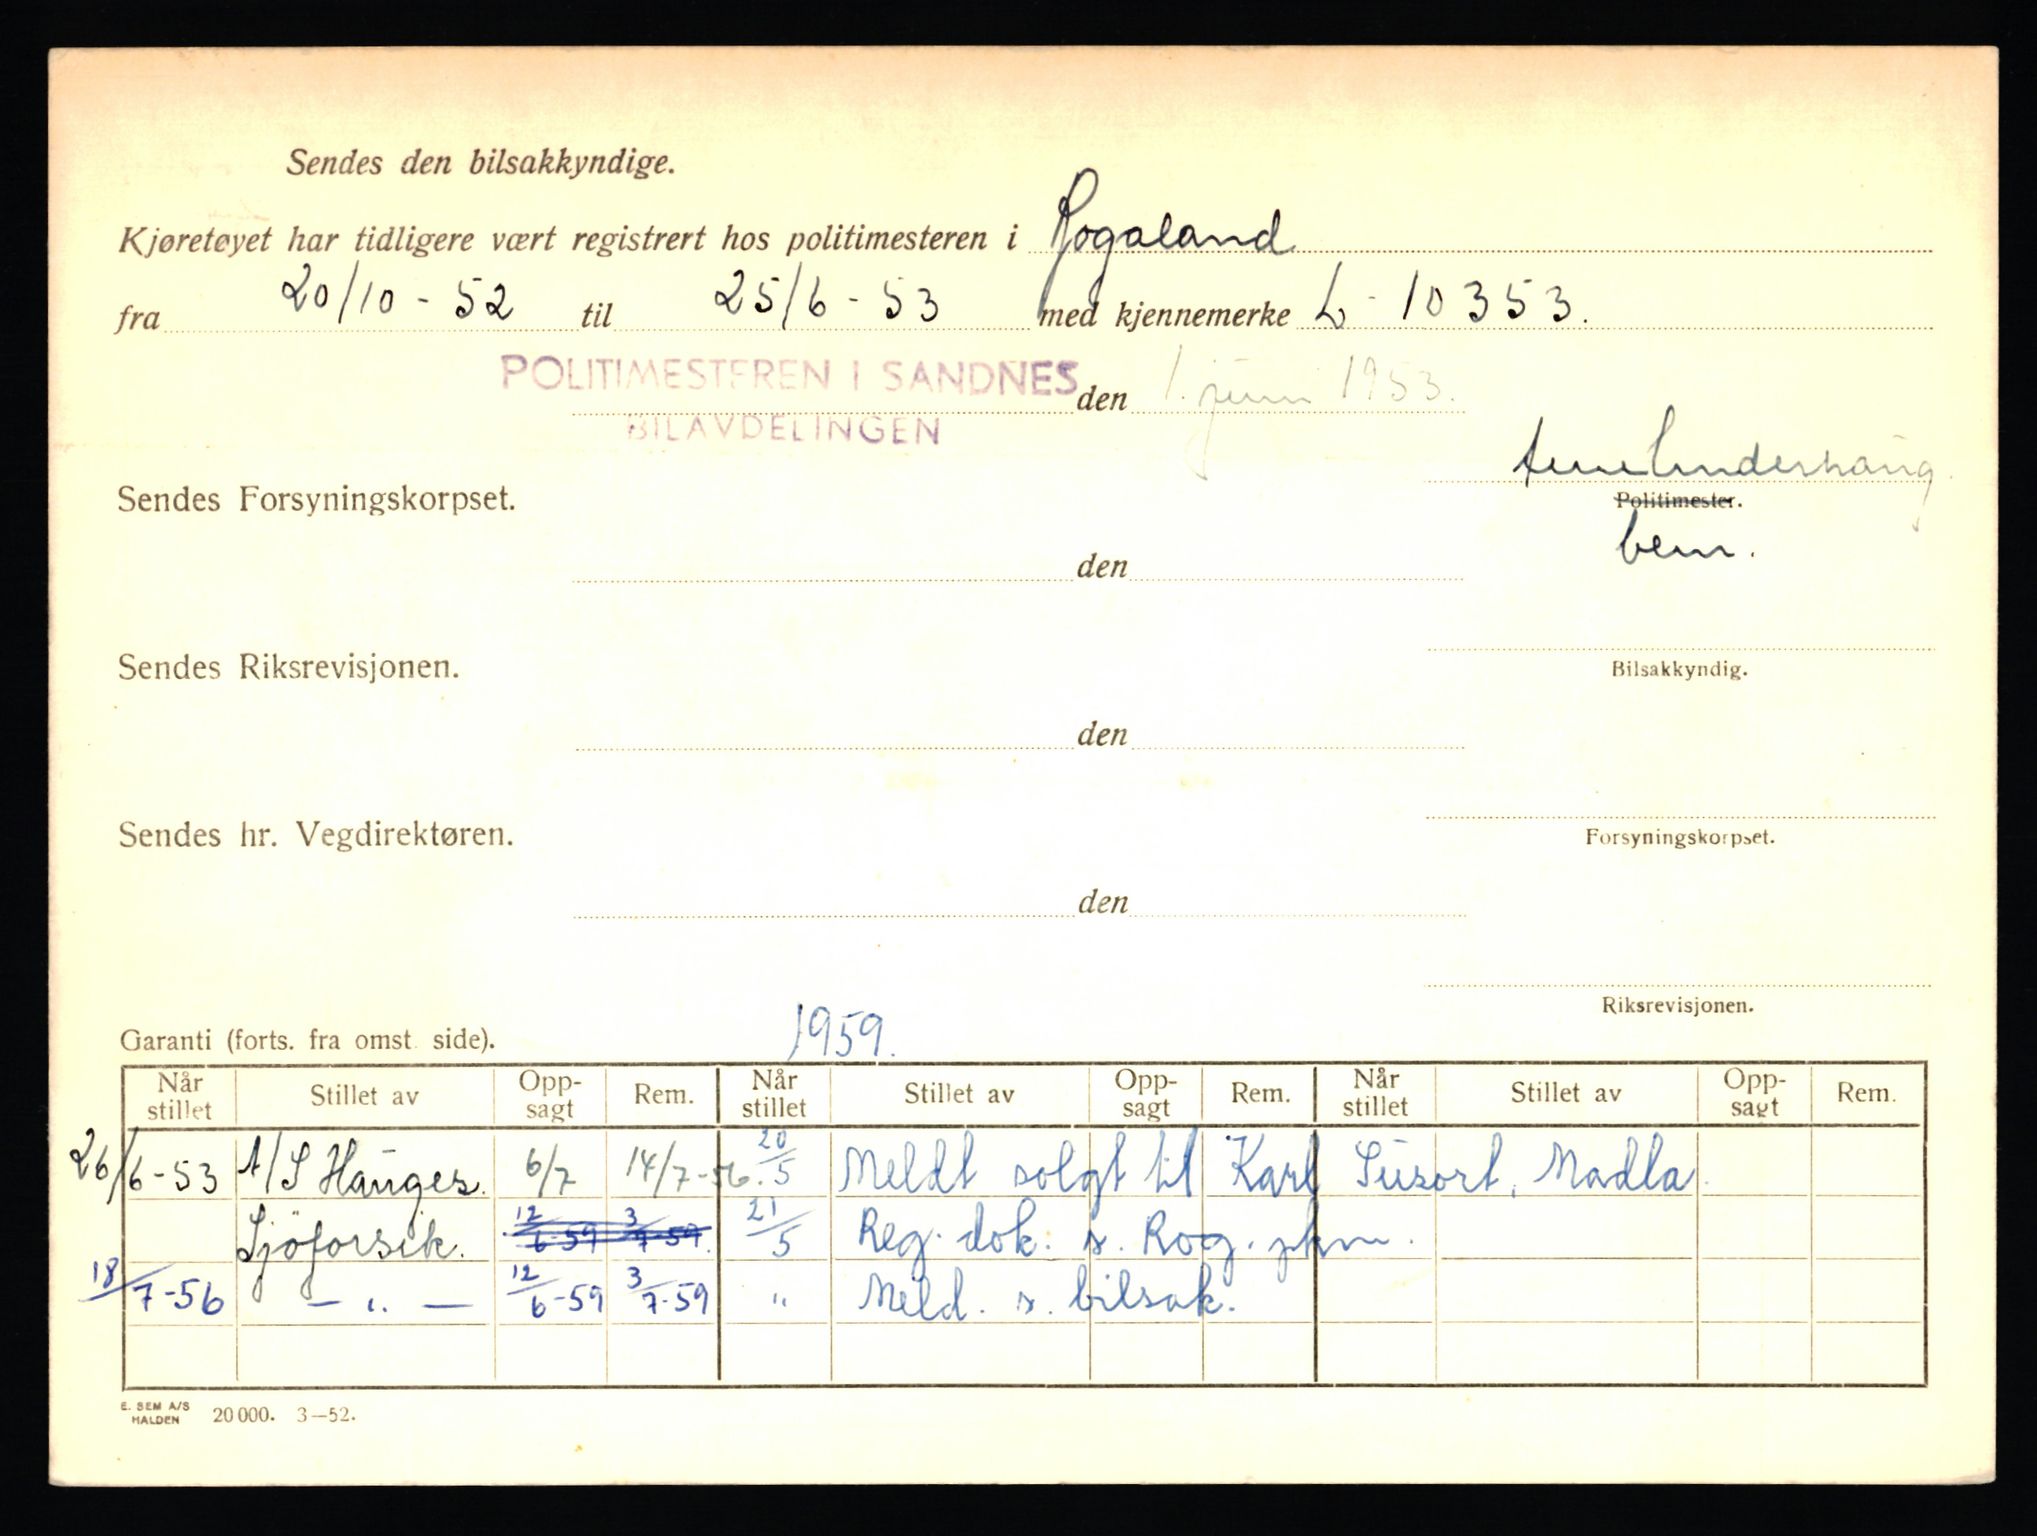 Sendes den bilsakkyndige.
Kjøretøyet har tidligere vært registrert hos politimesteren i Rogaland
fra 20/10 - 52 til 25/6 - 53 med kjennemerke L - 10353.
POLITIMESTEREN I SANDNES
BILAVDELINGEN
den 1. juni 1953.
Sendes Forsyningskorpset.
Politimester.
bem.
den
Sendes Riksrevisjonen.
Bilsakkyndig.
den
Sendes hr. Vegdirektøren.
Forsyningskorpset.
den
Riksrevisjonen.
Garanti (forts. fra omst. side). 1959.
Når stillet Stillet av Opp-sagt Rem. Når stillet Stillet av Opp-sagt Rem. Når stillet Stillet av Opp-sagt Rem.
26/6-53 A/S Hauges. 6/7 14/7-56. 20/5 Meldt solgt til Karl Susort, Madla.
Sjöforsik. 12/6-59 3/7-59. 21/5 Reg. dok. s. Rog. pkm.
18/7-56 — " — 12/6-59 3/7-59 " Meld. s. bilsak.
E. SEM A/S
HALDEN 20 000. 3—52.